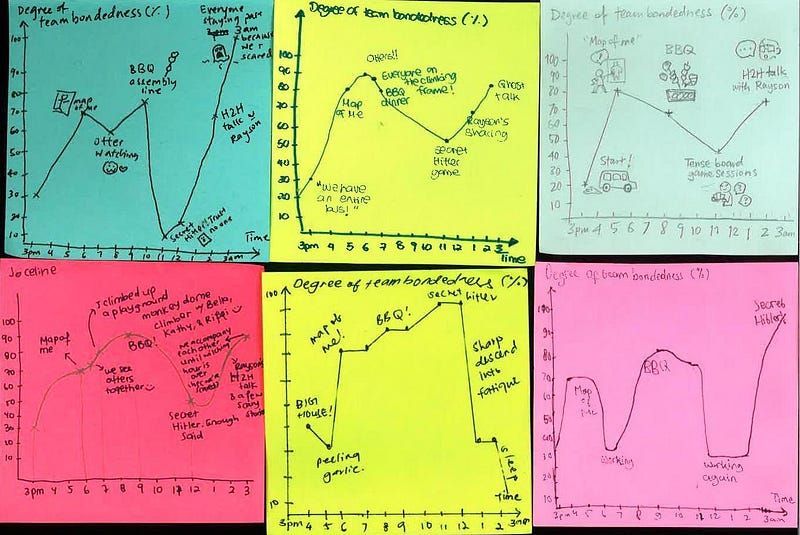 Degree of
team bondedness (%)
Everyone
staying past
3am
because
we r
scared
100
90
80
70
60
50
40
30
20
10
map
of me
BBQ
assembly
line
Otter
watching
H2H
talk w
Rayson
Secret
Hitler: Trust
no one
Time
3pm 4 5 6 7 8 9 10 11 12 1 2 3am
Degree of team bondedness (%)
100
90
80
70
60
50
40
30
20
10
"We have
an entire
bus!"
Map
of Me
Otters!!
Everyone on
the climbing
frame!
BBQ
dinner
Secret
Hitler
game
Rayson's
sharing
Ghost
talk
3pm 4 5 6 7 8 9 10 11 12 1 2 3
time
Degree of team bondedness (%)
100
90
80
70
60
50
40
30
20
10
"Map of me"
Start!
BBQ
Tense board
game sessions
H2H talk
with Rayson
3pm 4 5 6 7 8 9 10 11 12 1 2 3am
Joceline
100
90
80
70
60
50
40
30
20
10
Map of
me
I climbed up
a playground
monkey dome
climber w Bella,
Kathy, & Rifqi
we see
otters
together
BBQ!
we accompany
each other
until
hour is
over
Secret
Hitler. Enough
Said
Rayson's
H2H
talk
& a few
scary
3pm 4 5 6 7 8 9 10 11 12 1 2 3
Degree of team bondedness (%)
100
10
BIG
HOUSE!
peeling
garlic.
map of
me!
BBQ!
secret hitler
sharp
descend
into
fatigue
sleep
Time
3pm 4 5 6 7 8 9 10 11 12 1 2 3am
Degree of team bondedness (%)
100
90
80
70
60
50
40
30
20
10
Map
of me
working
BBQ
working
again
Secret
Hitler
Time
3pm 4 5 6 7 8 9 10 11 12 1 2 3am